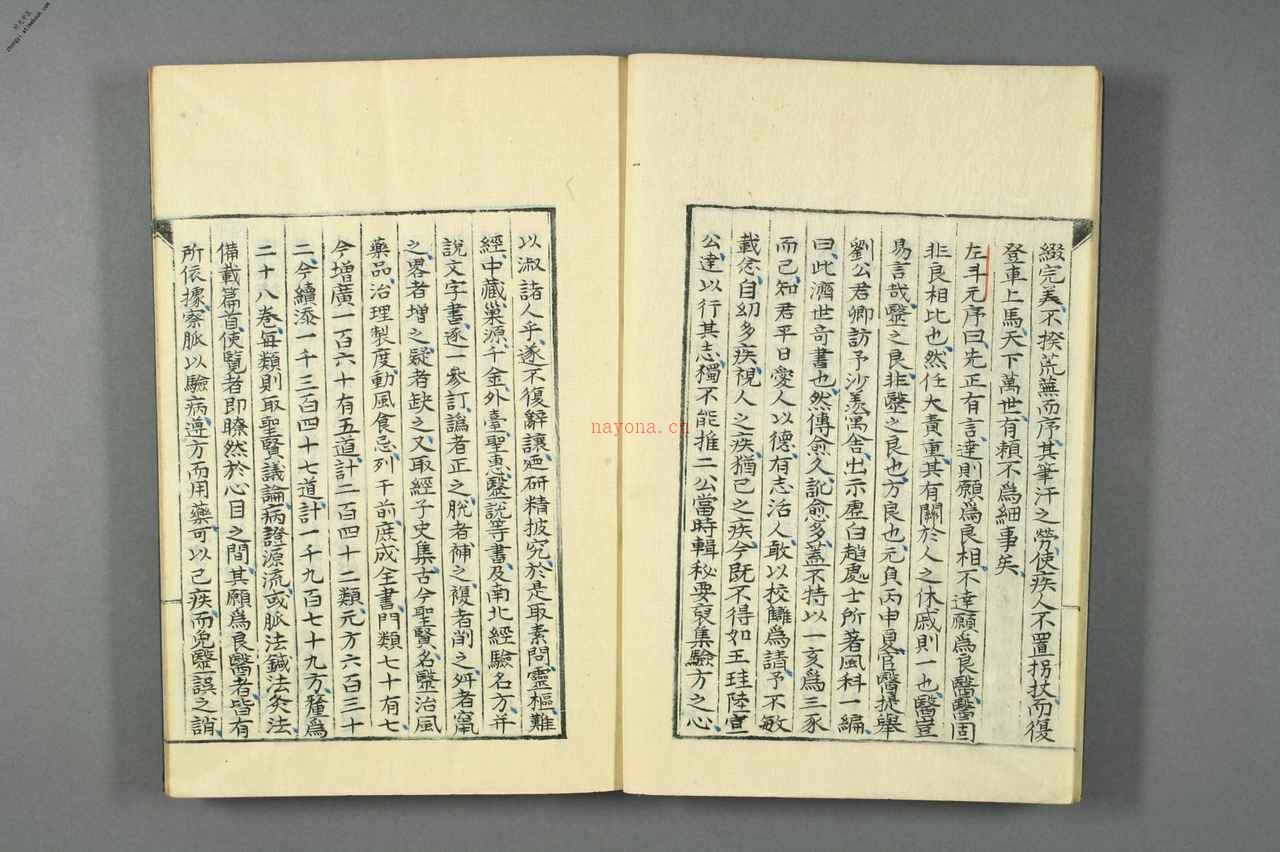 綴完美不揆荒蕪而序其筆汗之勞使疾人不置拐扙而復
登車上馬天下萬世有頼不爲細事矣
左斗元序曰先正有言達則願爲良相不達願爲良醫醫固
非良相比也然任大責重其有關於人之休戚則一也醫豈
易言哉醫之良非醫之良也方良也元貞丙申夏官醫提舉
劉公君卿訪予沙羡寓舍出示虚白趙處士所著風科一編
曰此濟世奇書也然傳愈久訛愈多蓋不特以一亥爲三豕
而已知君平日愛人以德有志活人敢以校讎爲請予不敏
載念自幼多疾視人之疾猶己之疾今既不得如王珪陸宣
公達以行其志獨不能推二公當時輯秘要裒集驗方之心
以淑諸人乎遂不復辭讓廼研精披究於是取素問靈樞難
經中藏巢源千金外臺聖惠醫說等書及南北經驗名方并
說文字書逐一參訂譌者正之脫者補之複者削之舛者竄
之畧者增之疑者缺之又取經子史集古今聖賢名醫治風
藥品治理製度動風食忌列于前庶成全書門類七十有七
今增廣一百六十有五道計二百四十二類元方六百三十
二今續添一千三百四十七道計一千九百七十九方釐爲
二十八卷每類則取聖賢議論病證源流或脈法鍼法灸法
備載篇首使覽者即瞭然於心目之間其願爲良醫者皆有
所依據察脈以驗病遵方而用藥可以已疾而免醫誤之誚
nayona.cn